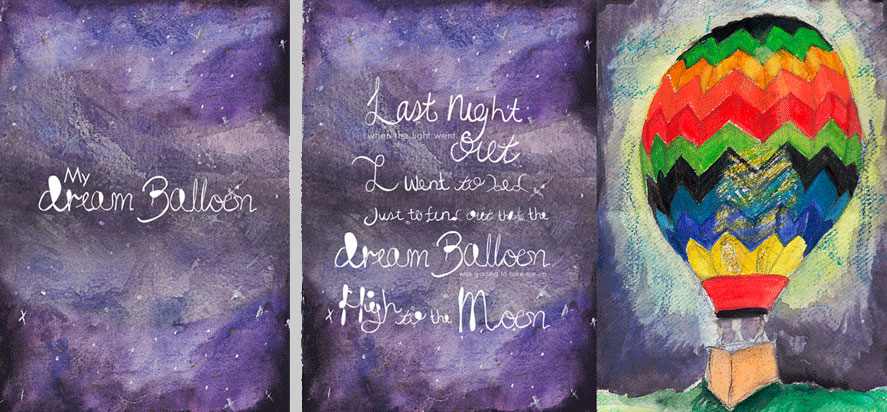 My
dream Balloon
Last night
when the light went
out
I went to bed
Just to find out that the
dream Balloon
was waiting to take me up
High to the Moon